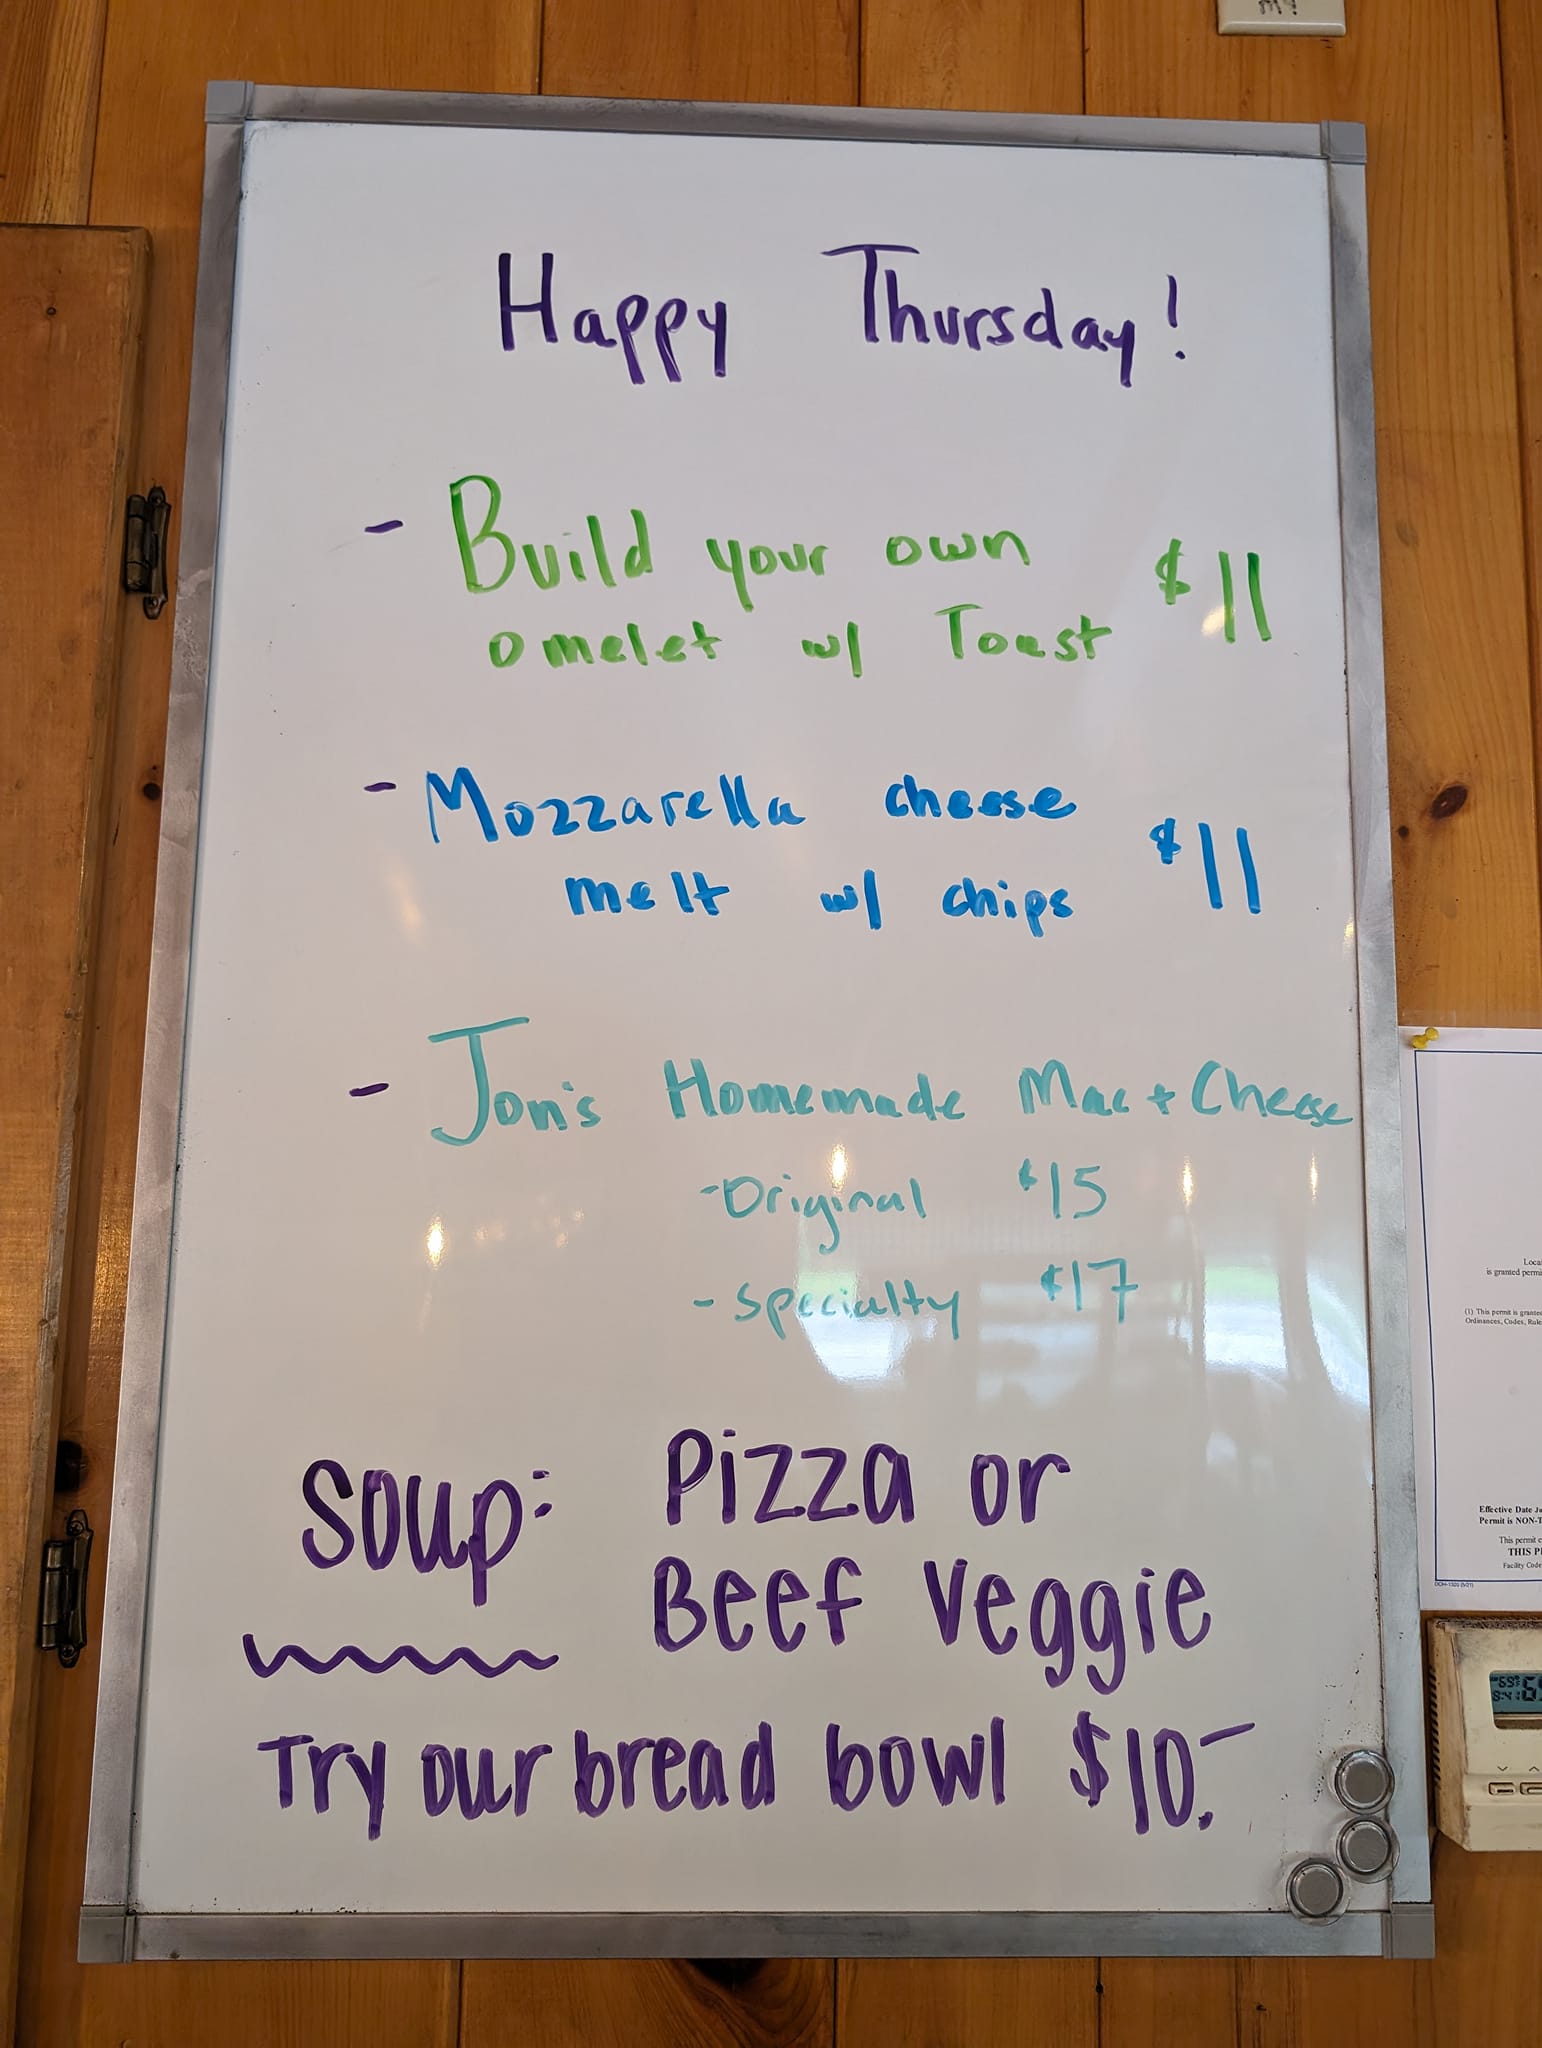 Happy Thursday!
- Build your own $11
omelet w/ Toast
- Mozzarella cheese
melt w/ chips $11
- Jon's Homemade Mac + Cheese
-Original $15
- Specialty $17
Soup: Pizza or
Beef Veggie
Try our bread bowl $10.-
is granted permi
(1) This permit is grante
Ordinances, Codes, Rule
Effective Date
Permit is NON-T
This permit
THIS P
Facility Code